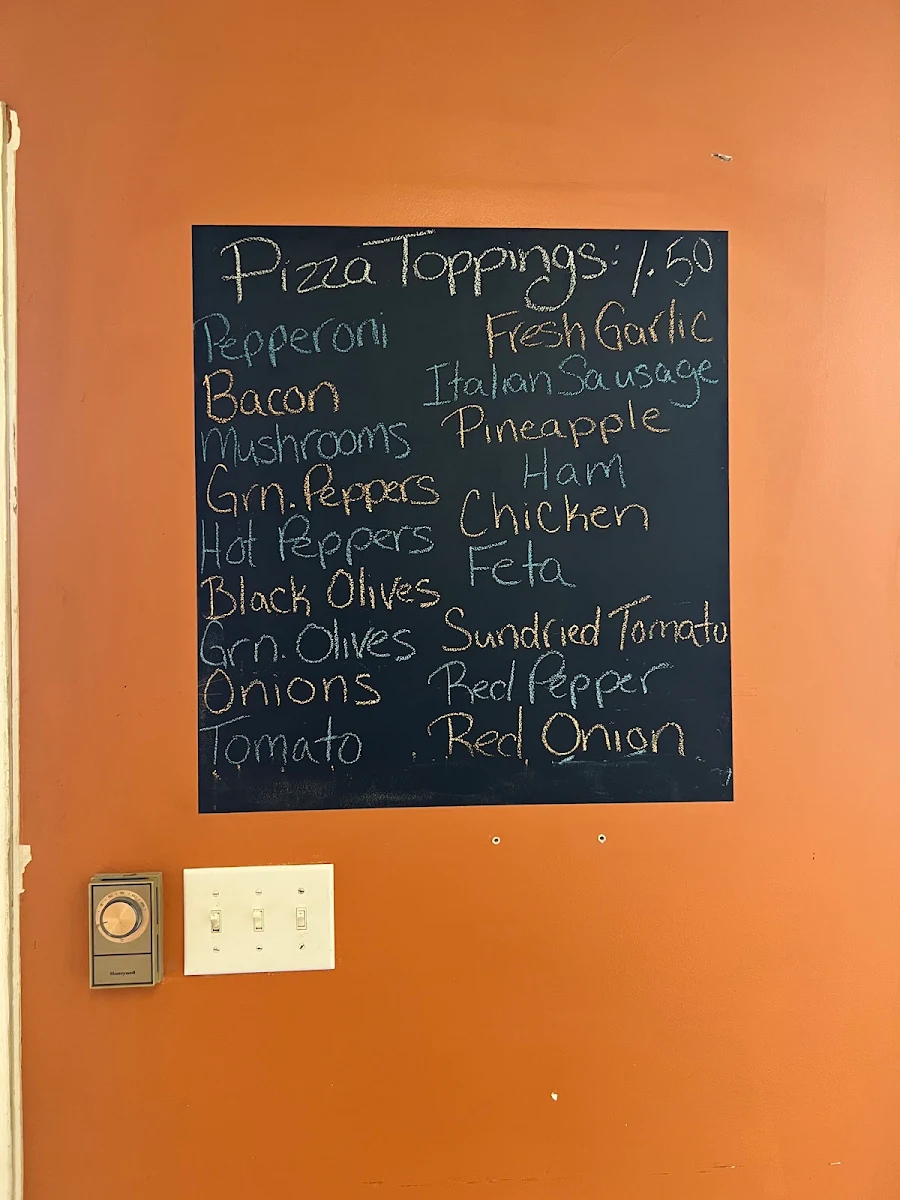 Pizza Toppings: 1.50
Pepperoni
Bacon
Mushrooms
Grn. Peppers
Hot Peppers
Black Olives
Grn. Olives
Onions
Tomato
Fresh Garlic
Italian Sausage
Pineapple
Ham
Chicken
Feta
Sundried Tomato
Red Pepper
Red Onion
Honeywell